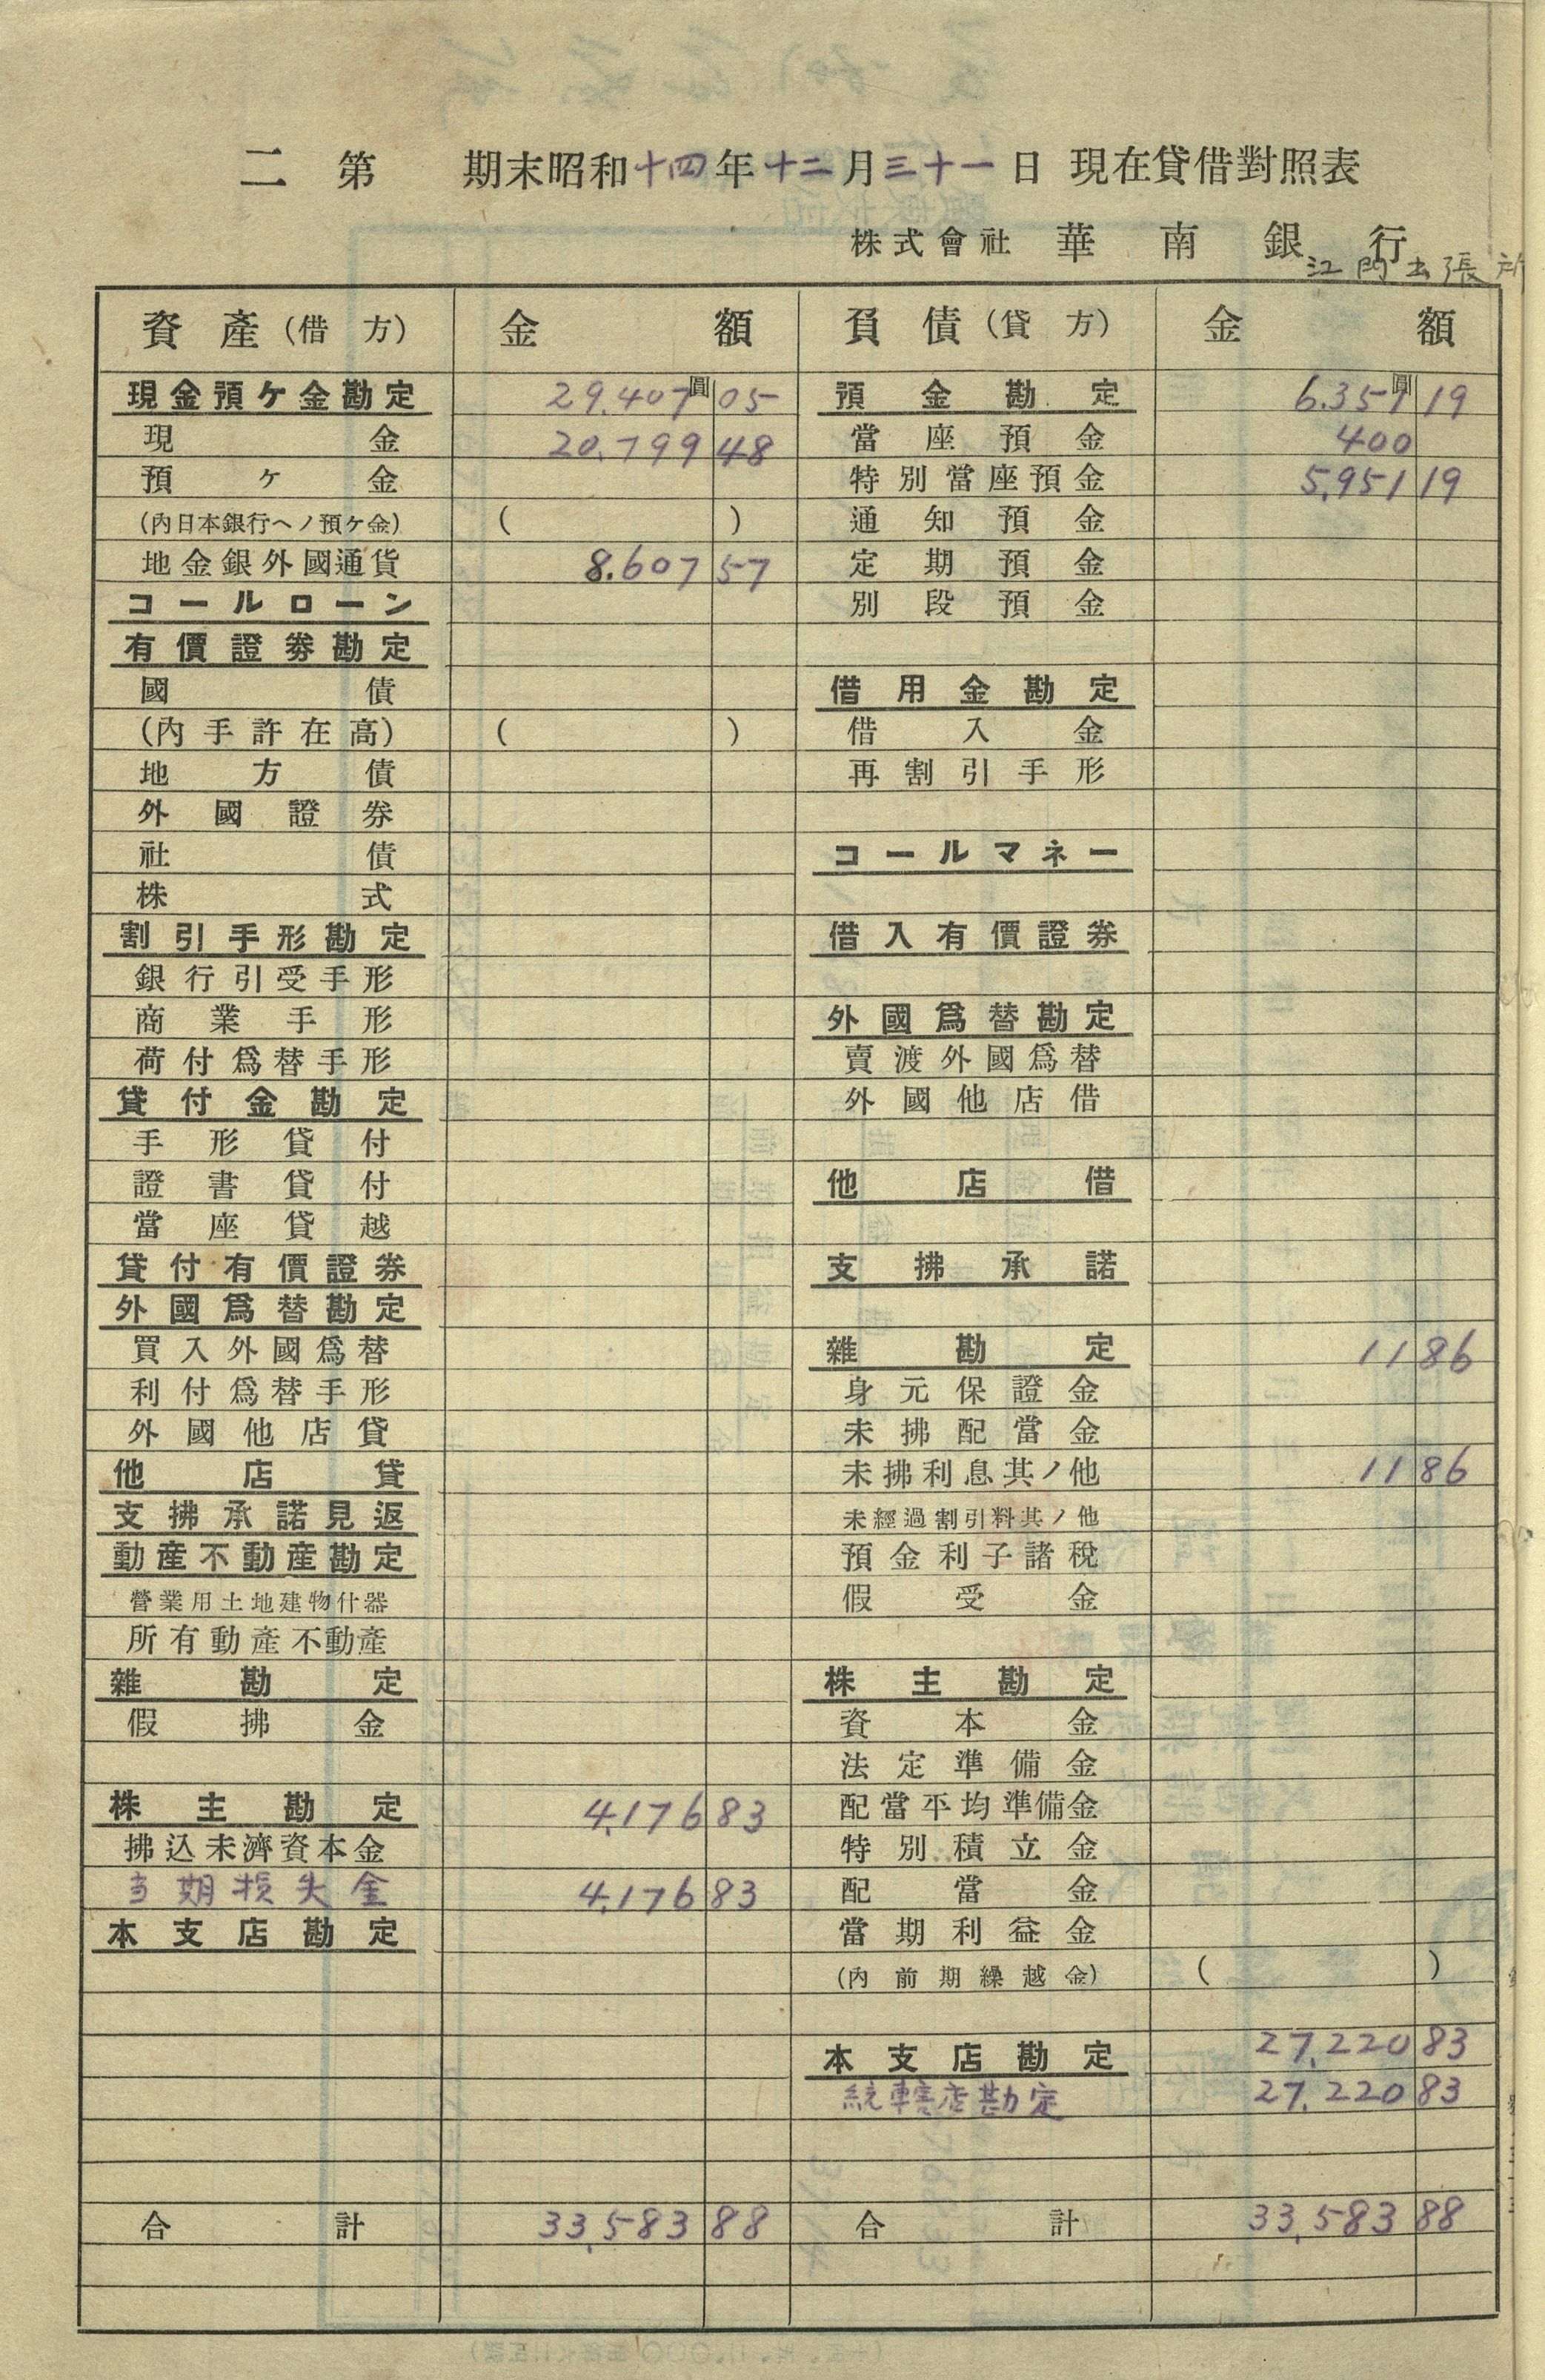 二 第 期末昭和十四年十二月三十一日 現在貸借對照表
株式會社 華南銀行
江門出張所
資產(借方) 金額 負債(貸方) 金額
現金預ケ金勘定 29,407圓05 預金勘定 6,351圓19
現金 20,799 48 當座預金 400
預ケ金 特別當座預金 5,951 19
(內日本銀行ヘノ預ケ金) ( ) 通知預金
地金銀外國通貨 8,607 57 定期預金
コールローン 別段預金
有價證券勘定
國債 借用金勘定
(內手許在高) ( ) 借入金
地方債 再割引手形
外國證券
社債 コールマネー
株式
割引手形勘定 借入有價證券
銀行引受手形
商業手形 外國爲替勘定
荷付爲替手形 賣渡外國爲替
貸付金勘定 外國他店借
手形貸付
證書貸付 他店借
當座貸越
貸付有價證券 支拂承諾
外國爲替勘定
買入外國爲替 雜勘定 11 86
利付爲替手形 身元保證金
外國他店貸 未拂配當金
他店貸 未拂利息其ノ他 11 86
支拂承諾見返 未經過割引料其ノ他
動產不動產勘定 預金利子諸稅
營業用土地建物什器 假受金
所有動產不動產
雜勘定 株主勘定
假拂金 資本金
法定準備金
株主勘定 4,176 83 配當平均準備金
拂込未濟資本金 特別積立金
当期損失金 4,176 83 配當金
本支店勘定 當期利益金
(內前期繰越金) ( )
本支店勘定 27,220 83
統轄店勘定 27,220 83
合計 33,583 88 合計 33,583 88